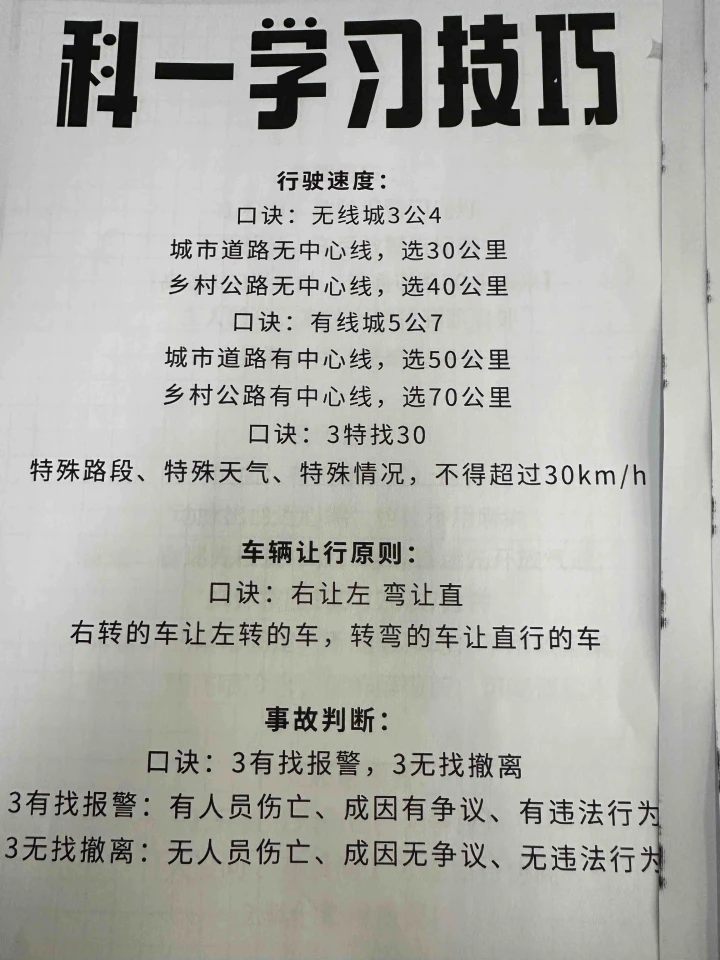 科一学习技巧
行驶速度：
口诀：无线城3公4
城市道路无中心线，选30公里
乡村公路无中心线，选40公里
口诀：有线城5公7
城市道路有中心线，选50公里
乡村公路有中心线，选70公里
口诀：3特找30
特殊路段、特殊天气、特殊情况，不得超过30km/h
车辆让行原则：
口诀：右让左 弯让直
右转的车让左转的车，转弯的车让直行的车
事故判断：
口诀：3有找报警，3无找撤离
3有找报警：有人员伤亡、成因有争议、有违法行为
3无找撤离：无人员伤亡、成因无争议、无违法行为